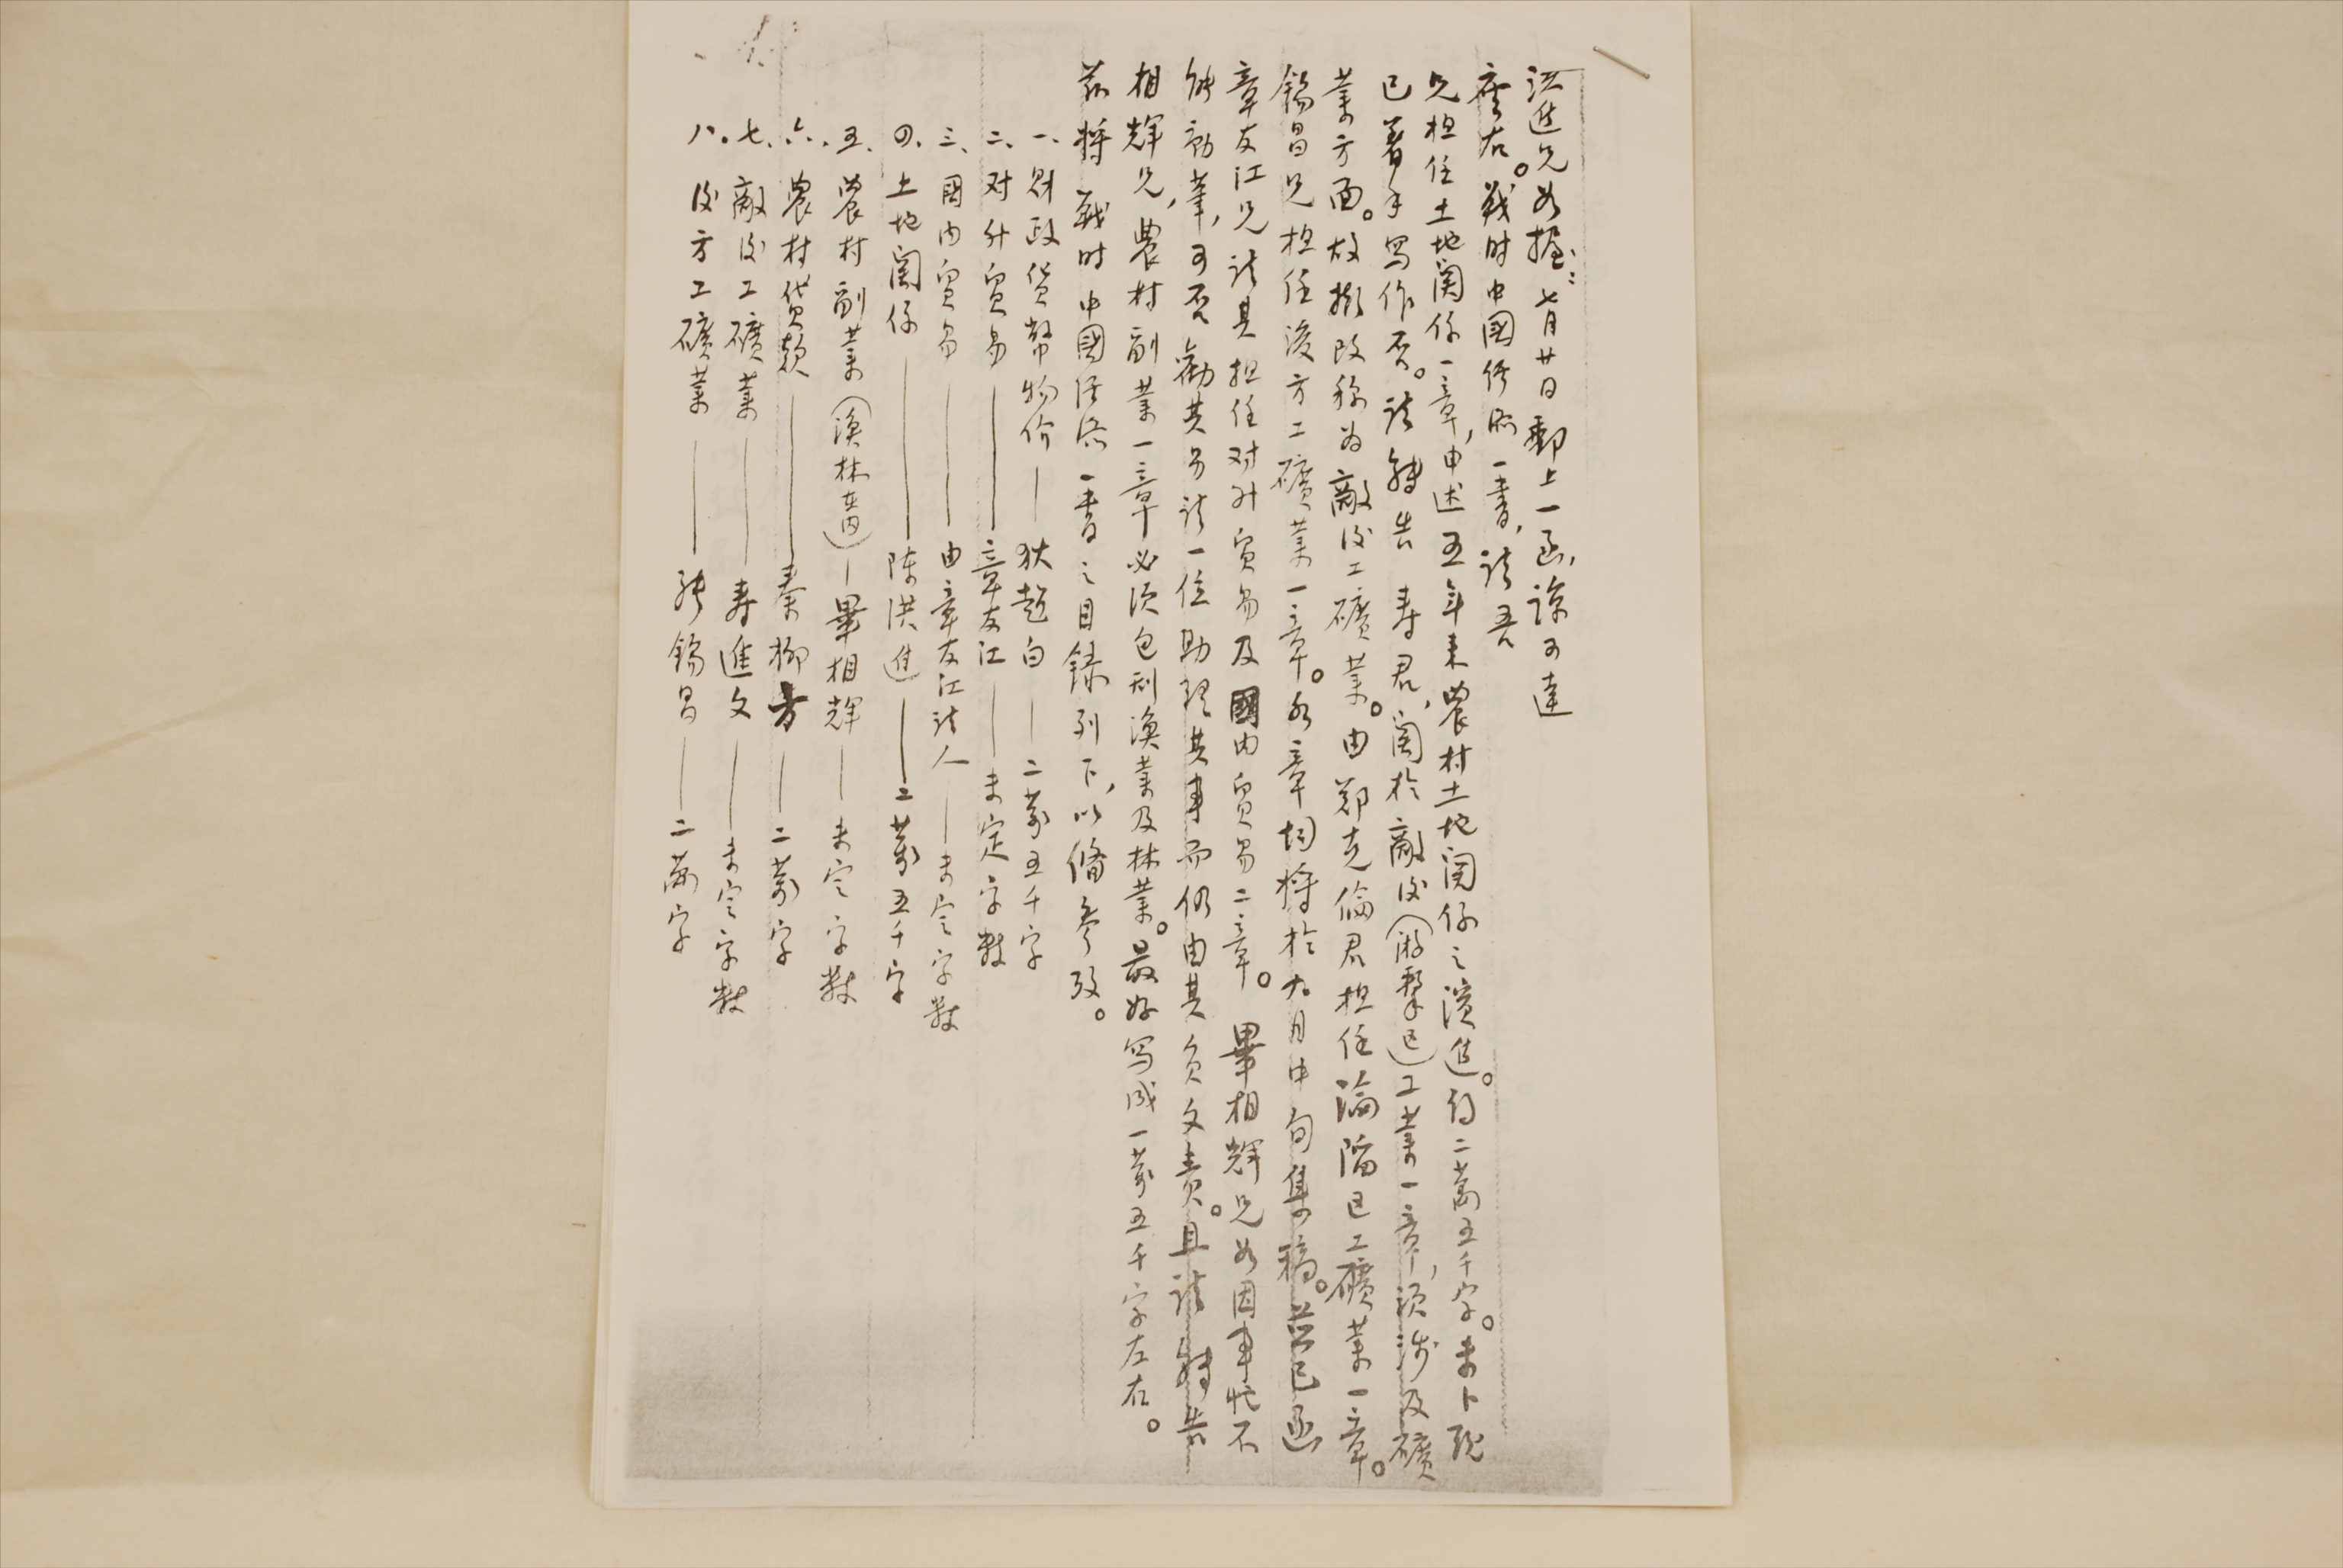 洪進兄如握：七月廿日郵上一函，諒可達
座右。戰时中國经济一書，請吾
兄担任土地関係一章，申述五年来農村土地関係之演進。約二萬五千字。未卜現
已着手写作否。請轉告 寿君，関於敵後（游擊区）工業一章，須涉及礦
業方面。故擬改称为敵後工礦業。由鄭克倫君担任淪陷区工礦業一章。
錫昌兄担任後方工礦業一章。各章均将於九月中旬集稿。茲已函
章友江兄請其担任对外貿易及國内貿易二章。畢相輝兄如因事忙不
能動筆，可否勸其另請一位助理其事而仍由其負文責。且請轉告
相輝兄，農村副業一章必須包刮漁業及林業。最好写成一萬五千字左右。
茲将戰时中國经济一書之目録列下，以俻參攷。
一、財政貨幣物价——狄超白——二萬五千字
二、对外貿易——章友江——未定字数
三、國内貿易——由章友江請人——未定字数
四、土地関係——陳洪進——二萬五千字
五、農村副業（漁林在内）——畢相輝——未定字数
六、農村貸款——秦柳方——二萬字
七、敵後工礦業——寿進文——未定字数
八。後方工礦業——張錫昌——二萬字